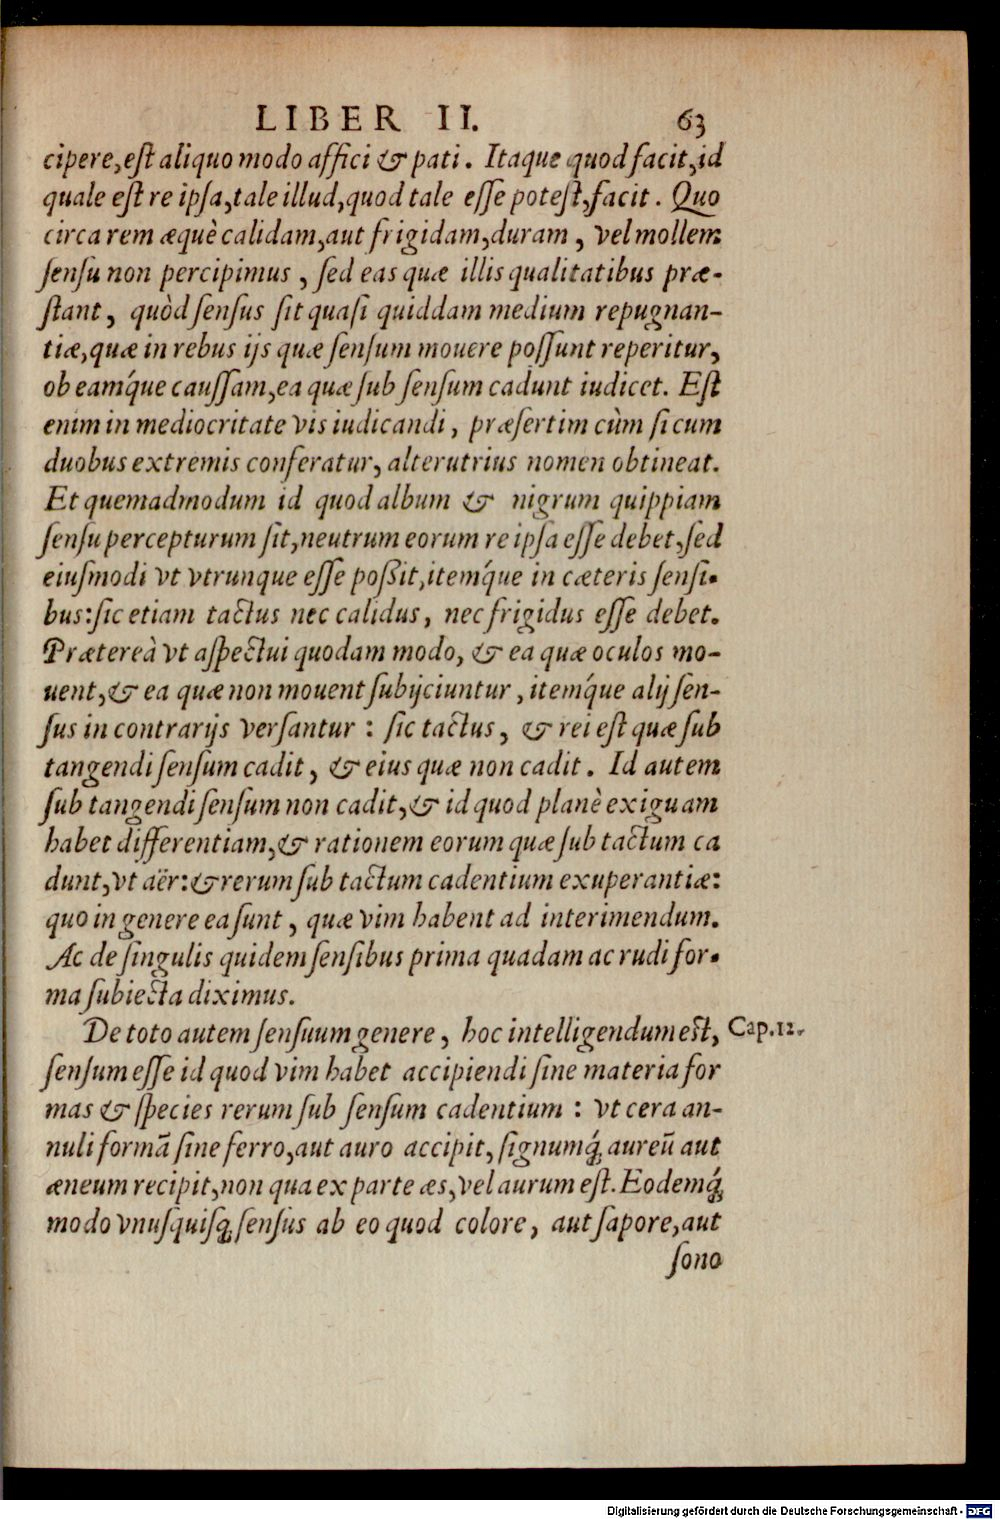 LIBER II. 63
cipere, eſt aliquo modo affici & pati. Itaque quod facit, id
quale eſt re ipſa, tale illud, quod tale eſſe poteſt, facit. Quo
circa rem æquè calidam, aut frigidam, duram, vel mollem
ſenſu non percipimus, ſed eas quæ illis qualitatibus præ-
ſtant, quòd ſenſus ſit quaſi quiddam medium repugnan-
tiæ, quæ in rebus ijs quæ ſenſum mouere poſſunt reperitur,
ob eamq́ue cauſſam, ea quæ ſub ſenſum cadunt iudicet. Eſt
enim in mediocritate vis iudicandi, præſertim cùm ſi cum
duobus extremis conferatur, alterutrius nomen obtineat.
Et quemadmodum id quod album & nigrum quippiam
ſenſu percepturum ſit, neutrum eorum re ipſa eſſe debet, ſed
eiuſmodi vt vtrunque eſſe poßit, itemq́ue in cæteris ſenſi-
bus: ſic etiam tactus nec calidus, nec frigidus eſſe debet.
Prætereà vt aſpectui quodam modo, & ea quæ oculos mo-
uent, & ea quæ non mouent ſubijciuntur, itemq́ue alij ſen-
ſus in contrarijs verſantur: ſic tactus, & rei eſt quæ ſub
tangendi ſenſum cadit, & eius quæ non cadit. Id autem
ſub tangendi ſenſum non cadit, & id quod planè exiguam
habet differentiam, & rationem eorum quæ ſub tactum ca
dunt, vt aër: & rerum ſub tactum cadentium exuperantiæ:
quo in genere ea ſunt, quæ vim habent ad interimendum.
Ac de ſingulis quidem ſenſibus prima quadam ac rudi for-
ma ſubiecta diximus.
De toto autem ſenſuum genere, hoc intelligendum eſt, Cap. 12.
ſenſum eſſe id quod vim habet accipiendi ſine materia for
mas & ſpecies rerum ſub ſenſum cadentium: vt cera an-
nuli formã ſine ferro, aut auro accipit, ſignumq́; aureũ aut
æneum recipit, non qua ex parte æs, vel aurum eſt. Eodemq́;
modo vnuſquiſq; ſenſus ab eo quod colore, aut ſapore, aut
ſono
Digitalisierung gefördert durch die Deutsche Forschungsgemeinschaft - DFG